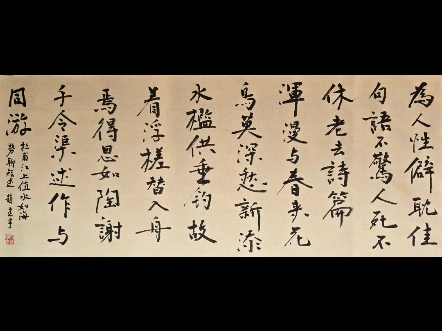 為人性僻耽佳
句語不驚人死不
休老去詩篇
渾漫与春来花
鳥莫深愁新添
水檻供垂釣故
着浮槎替入舟
焉得思如陶謝
手令渠述作与
同游
杜甫江上值水如海
勢聊短述